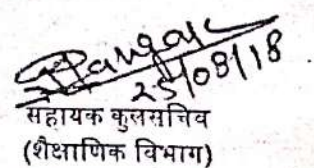 25/09/18
सहायक कुलसचिव
(शैक्षाणिक विभाग)